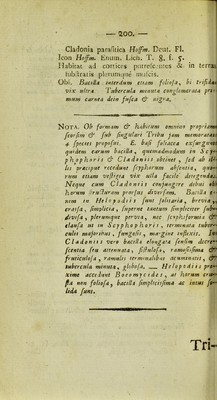 — 200. —
Cladonia parasitica Hoffm. Deut. Fl.
Icon Hoffm. Enum. Lich. T. 8. f. 5.
Habitat ad cortices putrescentes & in terra
substratis plerumque muscis.
Obs. Bacilla interdum etiam foliosa, bi trifida
vix ultra. Tubercula minuta conglomerata pri-
mum carnea dein fusca & nigra.
Nota. Ob formam & habitum omnino proprium
seorsim & sub singulari Tribu jam memoratas
4 species proposui. E. basi foliacea exsurgunt
quidem earum bacilla, quemadmodum in Scy-
phophoris & Cladoniis obtinet, sed ab il-
lis præcipue recedunt scyphorum absentia, quo-
rum etiam vestigia vix ulla facile detegenda.
Neque cum Cladoniis conjungere debui ob
horum structuram prorsus diversam. Bacilla e-
nim in Helopodiis sunt solitaria, brevia,
crassa, simplicia, superne tantum simpliciter sub-
divisa, plerumque pervia, nec scyphiformia &
clausa ut in Scyphophoris, terminata tuber-
culis majoribus, fungosis, margine inflexis. In
Cladoniis vero bacilla elongata sensim decre-
scentia seu attenuata, fistulosa, ramosissima &
fruticulosa, ramulis terminalibus acuminatis, &
tubercula minuta, globosa. — Helopodiis pro-
xime accedunt Bæomycides, at horum cru-
sta non foliosa, bacilla simplicissima ac intus so-
lida sunt.
Tri-